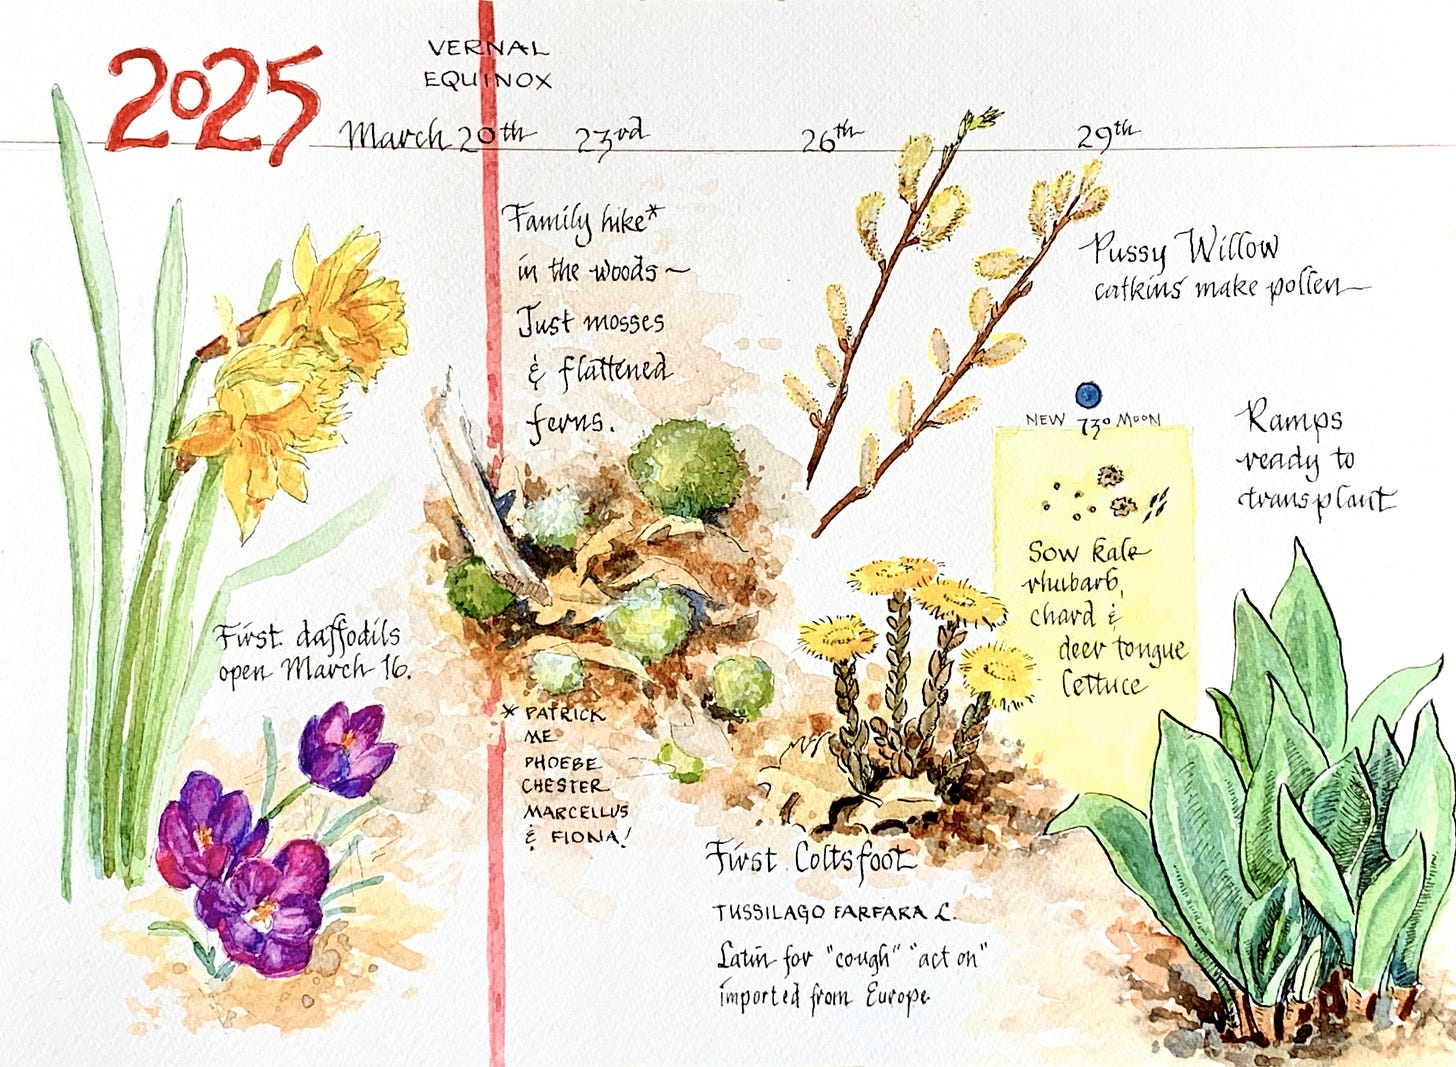 2025
VERNAL
EQUINOX
March 20th
23rd
26th
29th
Family hike*
in the woods ~
Just mosses
& flattened
ferns.
Pussy Willow
catkins make pollen
NEW MOON
73°
Ramps
ready to
transplant
Sow kale
rhubarb,
chard &
deer tongue
lettuce
First daffodils
open March 16.
* PATRICK
ME
PHOEBE
CHESTER
MARCELLUS
& FIONA!
First Coltsfoot
TUSSILAGO FARFARA L.
Latin for "cough" "act on"
imported from Europe